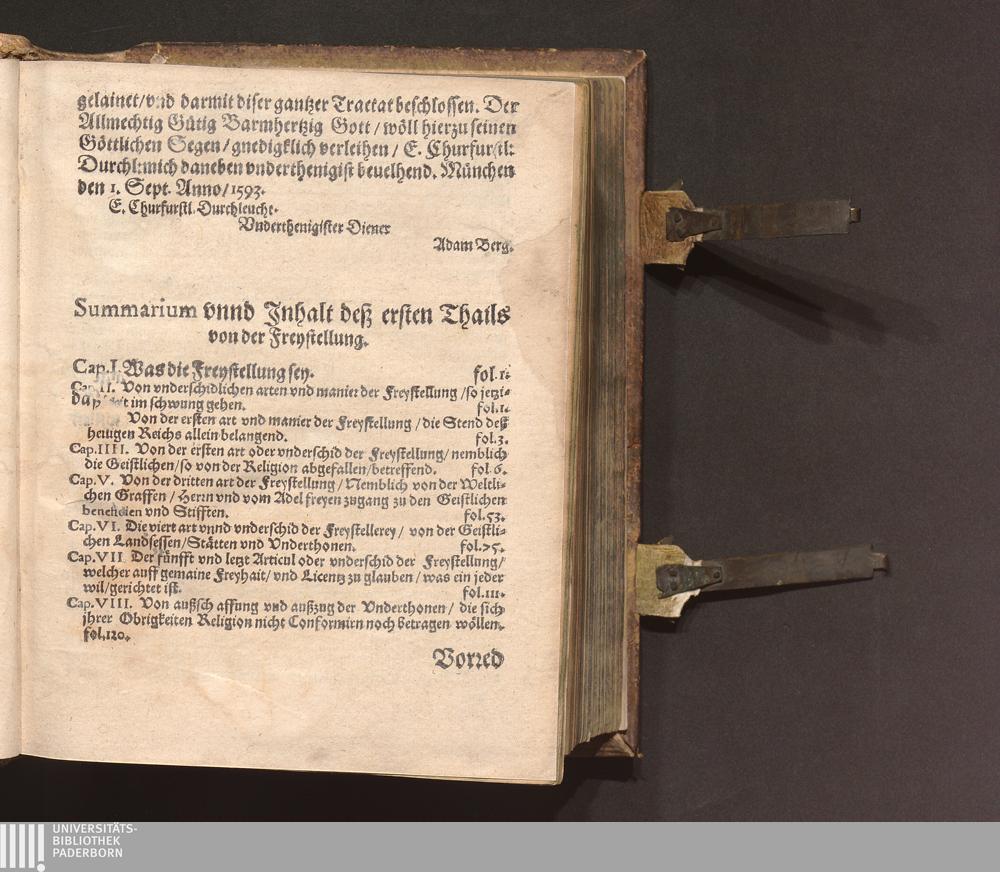 gelainet/vnd darmit diser gantzer Tractat beschlossen. Der
Allmechtig Gütig Barmhertzig Gott / wöll hierzu seinen
Göttlichen Segen / gnedigklich verleihen / E. Churfurstl:
Durchl: mich daneben vnderthenigist beuelhend. München
den 1. Sept. Anno / 1593.
E. Churfurstl. Durchleucht.
Vnderthenigister Diener
Adam Berg.
Summarium vnnd Jnhalt deß ersten Thails
von der Freystellung.
Cap. I. Was die Freystellung sey. fol. 1.
Cap. II. Von vnderschidlichen arten vnd manier der Freystellung / so jetzi-
im schwung gehen. fol. 1.
Von der ersten art vnd manier der Freystellung / die Stend deß
heiligen Reichs allein belangend. fol. 3.
Cap. IIII. Von der ersten art oder vnderschid der Freystellung / nemblich
die Geistlichen / so von der Religion abgefallen / betreffend. fol. 6.
Cap. V. Von der dritten art der Freystellung / Nemblich von der Weltli-
chen Graffen / Herrn vnd vom Adel freyen zugang zu den Geistlichen
beneficien vnd Stifften. fol. 53.
Cap. VI. Die viert art vnnd vnderschid der Freystellerey / von der Geistli-
chen Landsessen / Stätten vnd Vnderthonen. fol. 75.
Cap. VII Der fünfft vnd letzt Articul oder vnderschid der Freystellung /
welcher auff gemaine Freyhait / vnd Licentz zu glauben / was ein jeder
wil / gerichtet ist. fol. 111.
Cap. VIII. Von außschaffung vnd außzug der Vnderthonen / die sich
jhrer Obrigkeiten Religion nicht Conformirn noch betragen wöllen.
fol. 120.
Vorred
UNIVERSITÄTS-
BIBLIOTHEK
PADERBORN